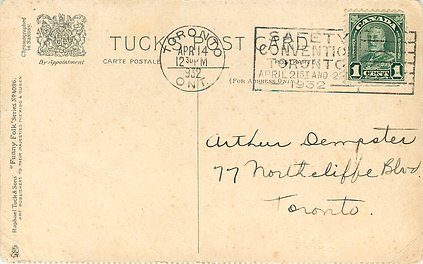 Chromographed in Saxony.
By Appointment
TUCK'S POST CARD
CARTE POSTALE
(For Address Only)
TORONTO
APR 14
12 30 PM
1932
ONT.
SAFETY
CONVENTION
TORONTO
APRIL 21ST AND 22
1932
CANADA
1 CENT 1
Raphael Tuck & Sons' "Funny Folk" Series
ART PUBLISHERS TO THEIR MAJESTIES THE KING & QUEEN
Arthur Dempster
77 Northcliffe Blvd.
Toronto.